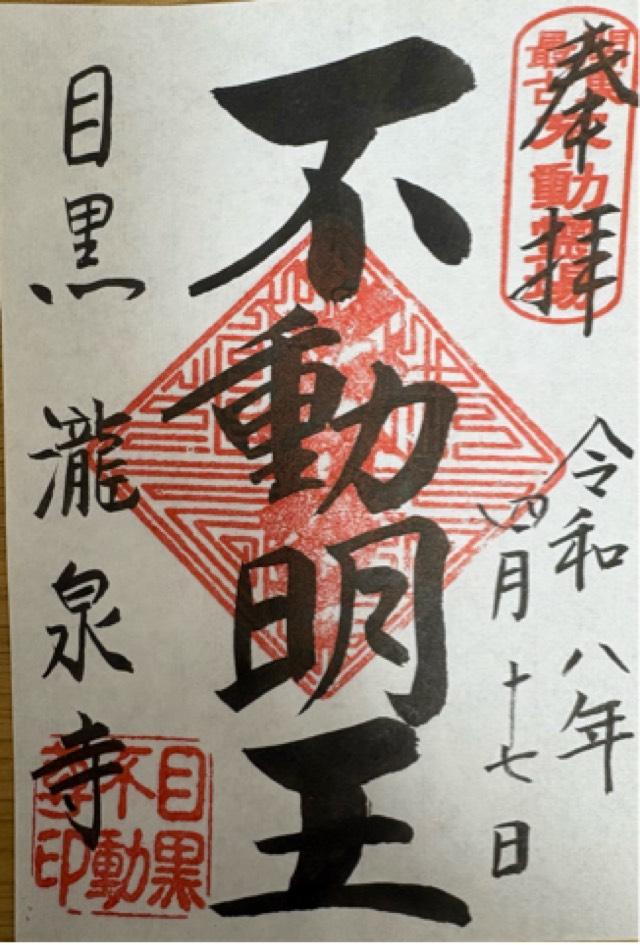 奉拝
関東最古不動霊場
令和八年
四月十七日
不動明王
目黒瀧泉寺
目黒不動尊印